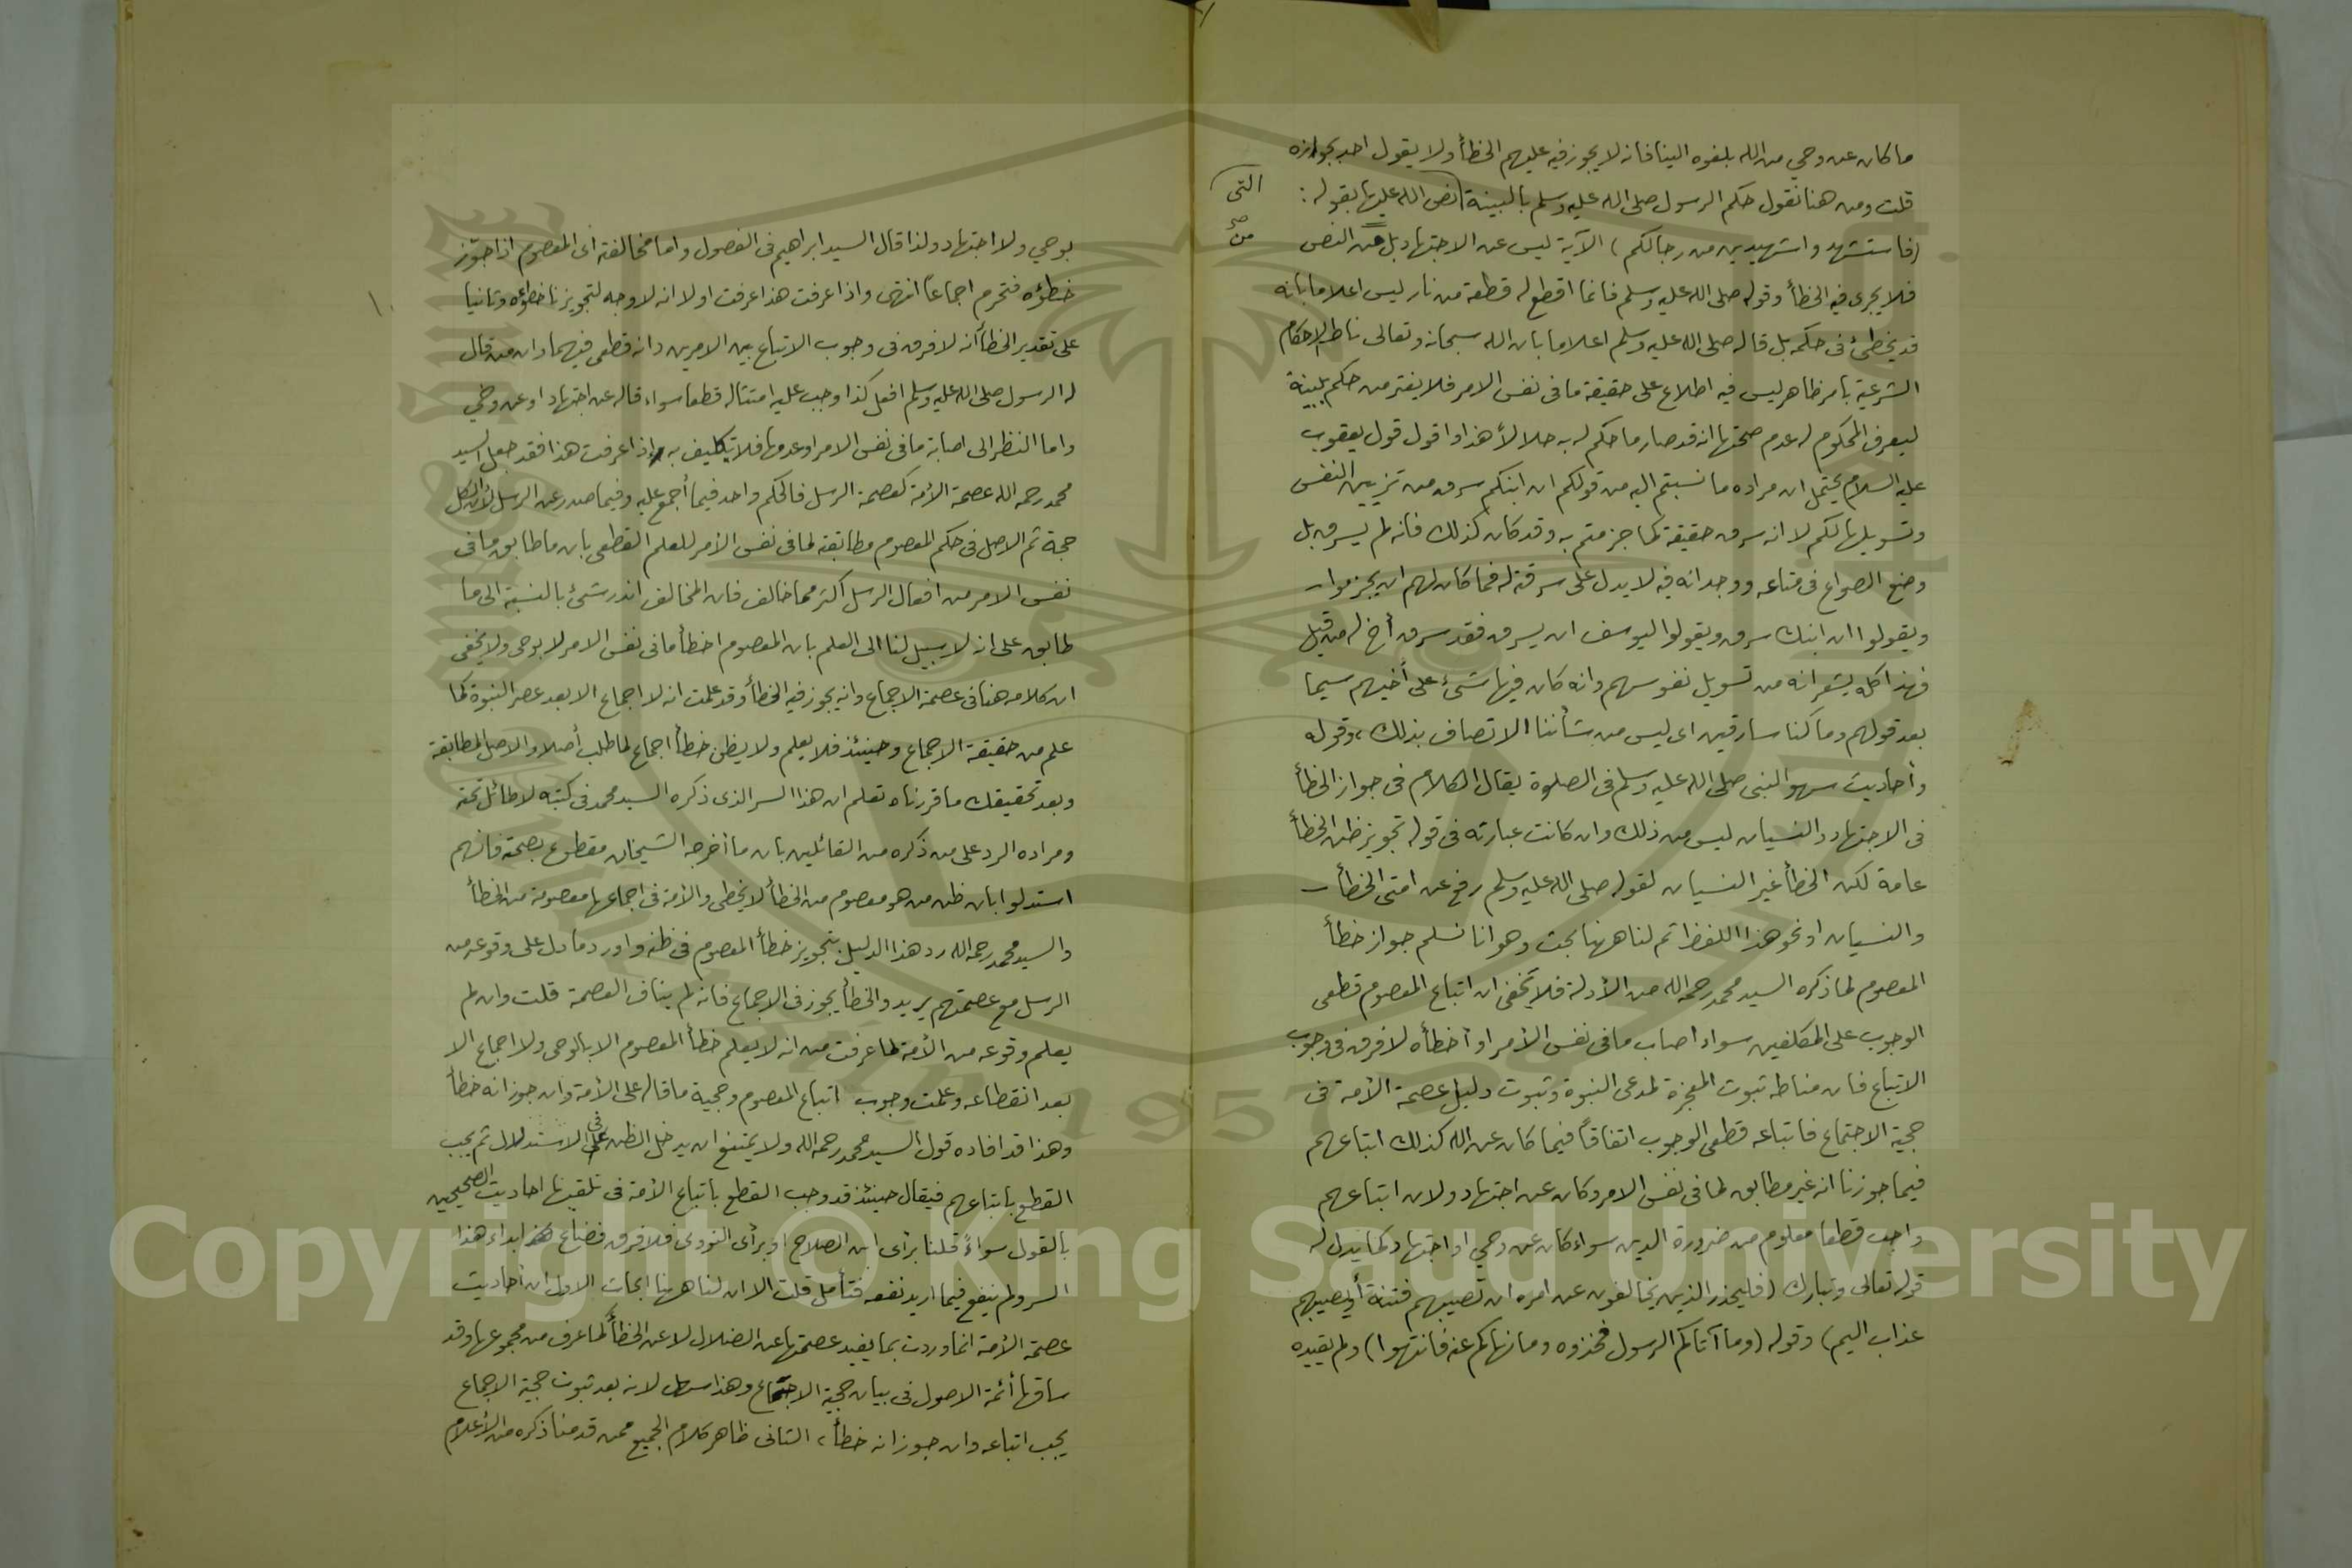 ما كان عن وحي من الله بلغوه الينا فانه لا يجوز فيه عليهم الخطأ ولا يقول احد بجوازه
قلت ومن هنا نقول حكم الرسول صلى الله عليه وسلم بالبينة نص الله عليها بقوله :
التى
صح
من
(فاستشهدوا شهيدين من رجالكم) الآية ليس عن الاجتهاد بل من النص
فلا يجرى فيه الخطأ وقوله صلى الله عليه وسلم فانما اقطع له قطعة من نار ليس اعلاما بانه
قد يخطئ فى حكمه بل قاله صلى الله عليه وسلم اعلاما بان الله سبحانه وتعالى ناط الاحكام
الشرعية بامر ظاهر ليس فيه اطلاع على حقيقة ما فى نفس الامر فلا يغتر من حكم ببينة
ليعرف المحكوم له عدم صحتها انه قد صار ما حكم له به حلالاً هذا واقول قول يعقوب
عليه السلام يحتمل ان مراده ما نسبتم اليه من قولكم ان ابنكم سرق من تزيين النفس
وتسويلها لكم لا انه سرق حقيقة كما جزمتم به وقد كان كذلك فانه لم يسرق بل
وضع الصواع فى متاعه ووجدانه فيه لا يدل على سرقته له فما كان لهم ان يجزموا
ويقولوا ان ابنك سرق ويقولوا ليوسف ان يسرق فقد سرق أخ له من قبل
فهذا كله يشعر انه من تسويل نفوسهم وانه كان فيها شئ على أخيهم سيما
بعد قولهم وما كنا سارقين اى ليس من شأننا الاتصاف بذلك ، وقوله
وأحاديث سهو النبى صلى الله عليه وسلم فى الصلوة يقال الكلام فى جواز الخطأ
فى الاجتهاد والنسيان ليس من ذلك وان كانت عبارته فى قوله تجويز ظن الخطأ
عامة لكن الخطأ غير النسيان لقوله صلى الله عليه وسلم رفع عن امتى الخطأ
والنسيان او نحو هذا اللفظ ثم لنا ههنا بحث وهو انا نسلم جواز خطأ
المعصوم لما ذكره السيد محمد رحمه الله من الأدلة فلا يخفى ان اتباع المعصوم قطعى
الوجوب على المكلفين سواء اصاب ما فى نفس الأمر او أخطأه لا فرق فى وجوب
الاتباع فان مناط ثبوت المعجزة لمدعى النبوة وثبوت دليل عصمة الأمة فى
حجية الاجتماع فاتباعه قطعى الوجوب اتفاقاً فيما كان عن الله كذلك اتباعهم
فيما جوزنا انه غير مطابق لما فى نفس الامر وكان عن اجتهاد ولان اتباعهم
واجب قطعا معلوم من ضرورة الدين سواء كان عن وحي او اجتهاد كما يدل له
قوله تعالى وتبارك (فليحذر الذين يخالفون عن امره ان تصيبهم فتنة أو يصيبهم
عذاب اليم) وقوله (وما آتاكم الرسول فخذوه وما نهاكم عنه فانتهوا) ولم يقيده
بوحي ولا اجتهاد ولذا قال السيد ابراهيم فى الفصول واما مخالفته اى المعصوم اذا جوّز
خطؤه فتحرم اجماعاً انتهى واذا عرفت هذا عرفت اولا انه لا وجه لتجويزنا خطؤه وثانيا
على تقدير الخطأ انه لا فرق فى وجوب الاتباع بين الامرين وانه قطعى فيهما وان من قال
له الرسول صلى الله عليه وسلم افعل كذا وجب عليه امتثاله قطعا سواء قاله عن اجتهاد او عن وحي
واما النظر الى اصابة ما فى نفس الامر او عدمها فلا تكليف به واذا عرفت هذا فقد جعل السيد
محمد رحمه الله عصمة الأمة كعصمة الرسل فالحكم واحد فيما أجمع عليه وفيما صدر عن الرسل لأن الكل
حجة ثم الاصل فى حكم المعصوم مطابقته لما فى نفس الأمر للعلم القطعى بان ما طابق ما فى
نفس الامر من افعال الرسل أكثر مما خالف فان المخالف اندر شئ بالنسبة الى ما
طابق على انه لا سبيل لنا الى العلم بان المعصوم اخطأ ما فى نفس الامر لا بوحى ولا يخفى
ان كلامه هنا فى عصمة الاجماع وانه يجوز فيه الخطأ وقد علمت انه لا اجماع الا بعد عصر النبوة كما
علم من حقيقة الاجماع وحينئذ فلا يعلم ولا يظن خطأ اجماع لما طلب أصلا والاصل المطابقة
وبعد تحقيقك ما قررناه تعلم ان هذا السر الذى ذكره السيد محمد فى كتبه لا طائل تحته
ومراده الرد على من ذكره من القائلين بان ما أخرجه الشيخان مقطوع بصحته فانهم
استدلوا بان ظن من هو معصوم من الخطأ لا يخطى والأمة فى اجماعها معصومة من الخطأ
والسيد محمد رحمه الله رد هذا الدليل بتجويز خطأ المعصوم فى ظنه واورد ما دل على وقوعه من
الرسل مع عصمتهم يريد والخطأ يجوز فى الاجماع فانه لم يناف العصمة قلت وان لم
يعلم وقوعه من الأمة لما عرفت من انه لا يعلم خطأ المعصوم الا بالوحى ولا اجماع الا
بعد انقطاعه وعلمت وجوب اتباع المعصوم وحجية ما قاله على الأمة وان جوز انه خطأ
وهذا قد افاده قول السيد محمد رحمه الله ولا يمتنع ان يدخل الظن فى الاستدلال ثم يجب
القطع باتباعهم فيقال حينئذ قد وجب القطع باتباع الأمة فى تلقيها احاديث الصحيحين
بالقول سواءً قلنا برأى ابن الصلاح او برأى النووى فلا فرق فضاع ابداء هذا
السر ولم ينفع فيما اريد نفعه فتأمل قلت الا ان لنا ههنا ابحاث الاول ان أحاديث
عصمة الأمة انما وردت بما يفيد عصمتها عن الضلال لا عن الخطأ كما عرف من مجموعها وقد
ساقها أئمة الاصول فى بيان حجية الاجماع وهذا سهل لانه بعد ثبوت حجية الاجماع
يجب اتباعه وان جوز انه خطأ ، الثانى ظاهر كلام الجميع ممن قدمنا ذكره من الأعلام
Copyright © King Saud University
1957